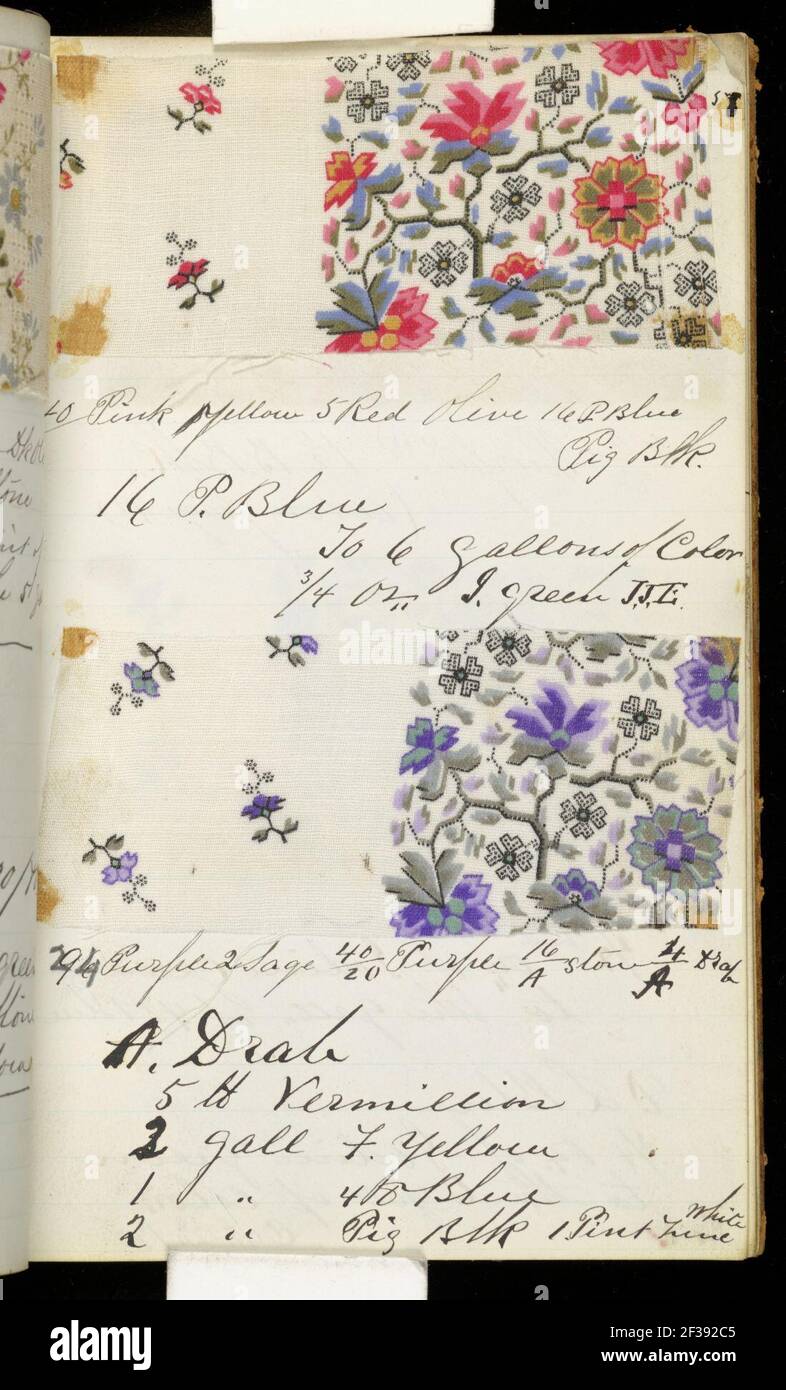 40 Pink Yellow 5 Red Olive 16 P. Blue
Pig Blk.
16 P. Blue
To 6 gallons of Color
3/4 Oz,, I. green J.J.E.
Purple 2 Sage 40/20 Purple 16/A Stone 4/A Drab
A, Drab
5 lb Vermillion
gall F. Yellow
1 " 48 Blue
2 " Pig Blk 1 Pint White
alamy
Image ID: 2F392C5
www.alamy.com